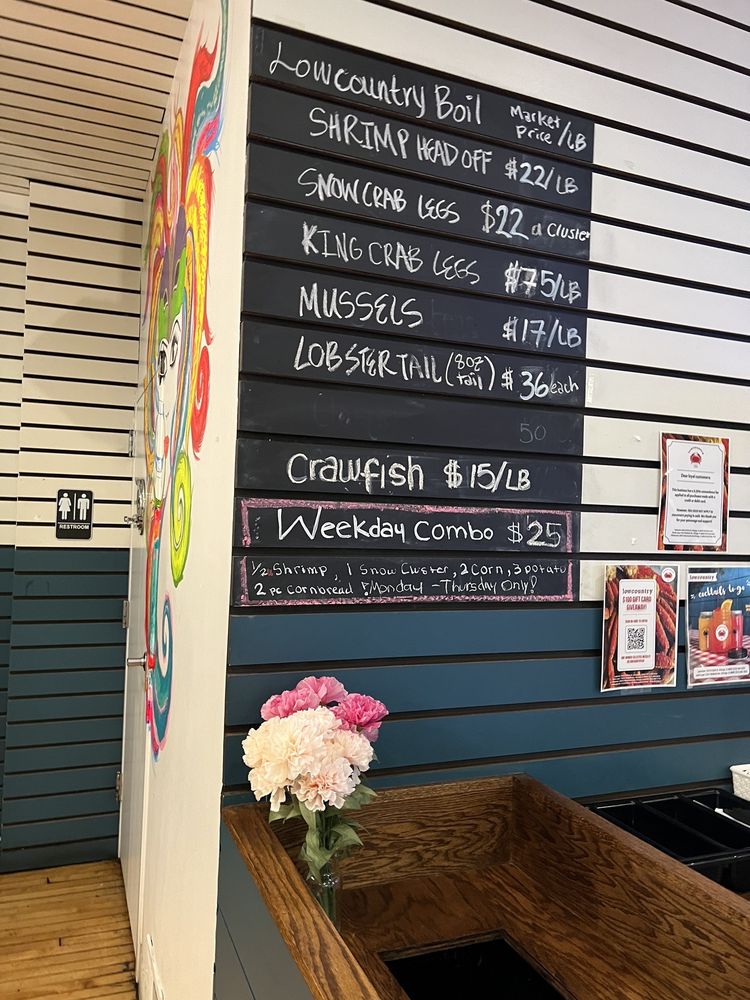 Lowcountry Boil Market Price/LB
SHRIMP HEAD OFF $22/LB
SNOW CRAB LEGS $22 a Cluster
KING CRAB LEGS $75/LB
MUSSELS $17/LB
LOBSTER TAIL (8oz tail) $36 each
50
Crawfish $15/LB
Weekday Combo $25
1/2 Shrimp, 1 Snow Cluster, 2 Corn, 3 potato
2 pc Cornbread Monday - Thursday Only!
RESTROOM
Dear loyal customers,
lowcountry
$100 GIFT CARD
GIVEAWAY!
lowcountry
cocktails to go